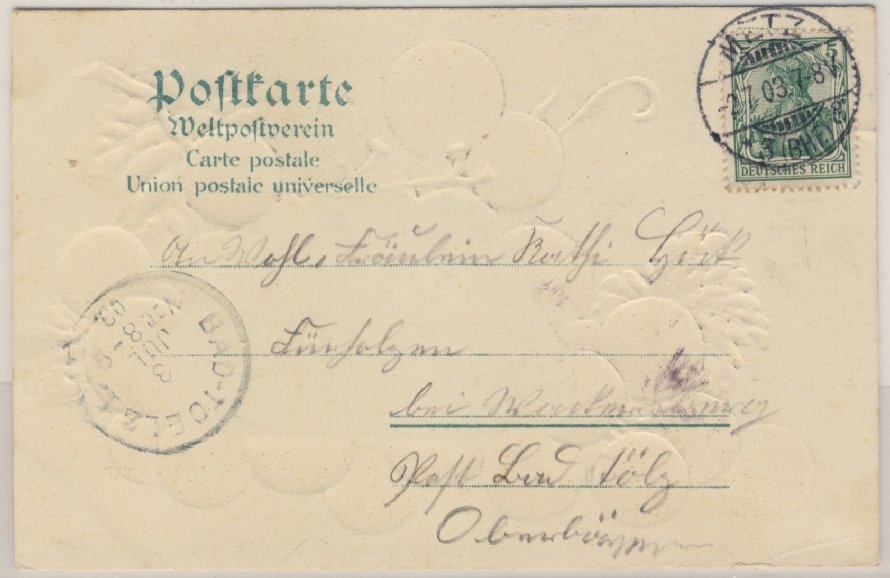 Postkarte
Weltpostverein
Carte postale
Union postale universelle
METZ
-2.7.03.7-8V.
* 3 (BHf.) e
5
DEUTSCHES REICH
An Wohl. Fräulein Kathi
bei
Post Bad Tölz
Oberbayern
BAD-TOELZ
3 JUL
03